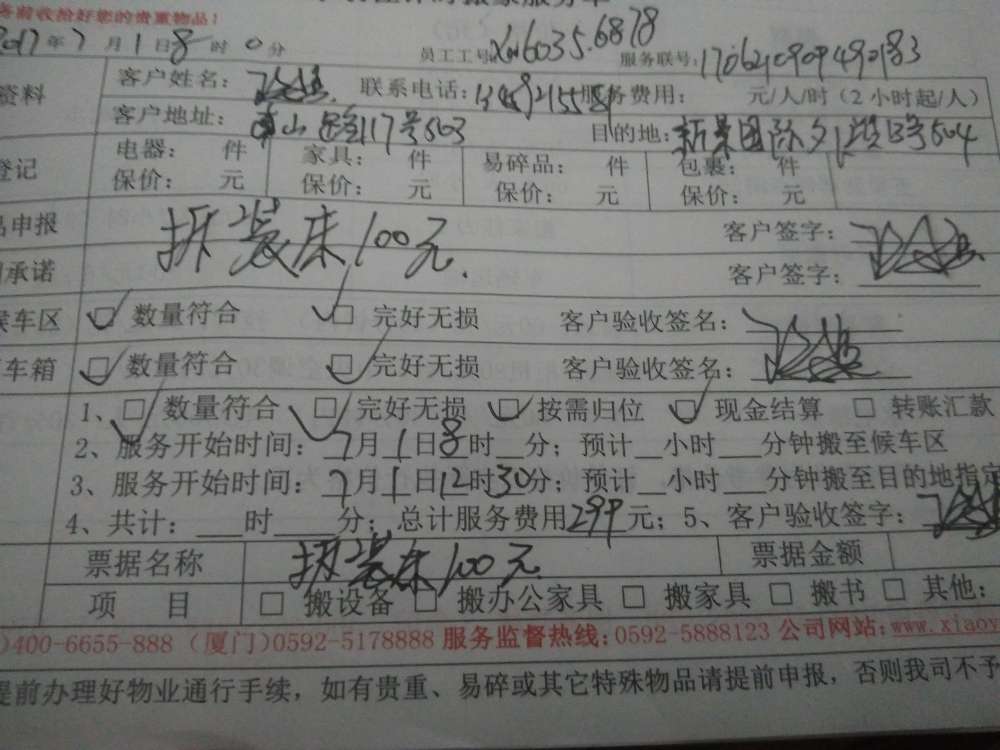 务前收拾好您的贵重物品!
2017年7月1日8时0分 员工工号 服务联号:
资料 客户姓名: 联系电话: 服务费用: 元/人/时(2小时起/人)
客户地址: 山 117号503 目的地: 504
登记 电器: 件 家具: 件 易碎品: 件 包裹: 件
保价: 元 保价: 元 保价: 元 保价: 元
品申报 拆装床100元. 客户签字:
承诺 客户签字:
候车区 □ 数量符合 □ 完好无损 客户验收签名:
车箱 □ 数量符合 □ 完好无损 客户验收签名:
1、□ 数量符合 □ 完好无损 □ 按需归位 □ 现金结算 □ 转账汇款
2、服务开始时间:7月1日8时__分;预计__小时___分钟搬至候车区
3、服务开始时间:7月1日12时30分;预计__小时___分钟搬至目的地指定
4、共计:___时____分;总计服务费用299元;5、客户验收签字:
票据名称 拆装床100元. 票据金额
项 目 □ 搬设备 □ 搬办公家具 □ 搬家具 □ 搬书 □ 其他:
)400-6655-888 (厦门)0592-5178888 服务监督热线:0592-5888123 公司网站:www.xiaoy
提前办理好物业通行手续,如有贵重、易碎或其它特殊物品请提前申报,否则我司不予